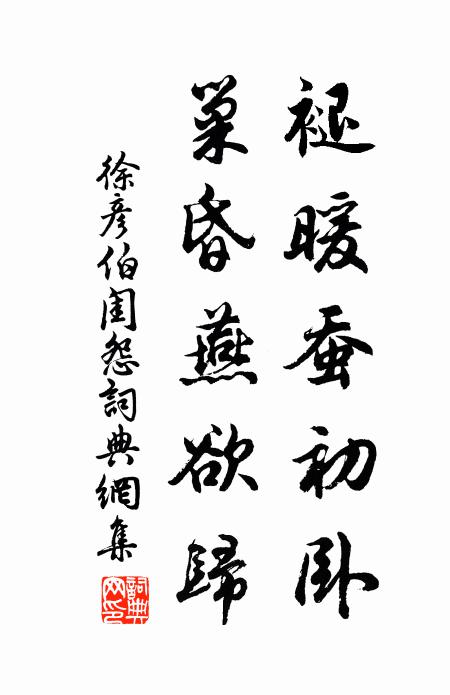 褪暖蚕初卧
巢昏燕欲歸
徐彦伯闺怨詞典網集
詞典網印